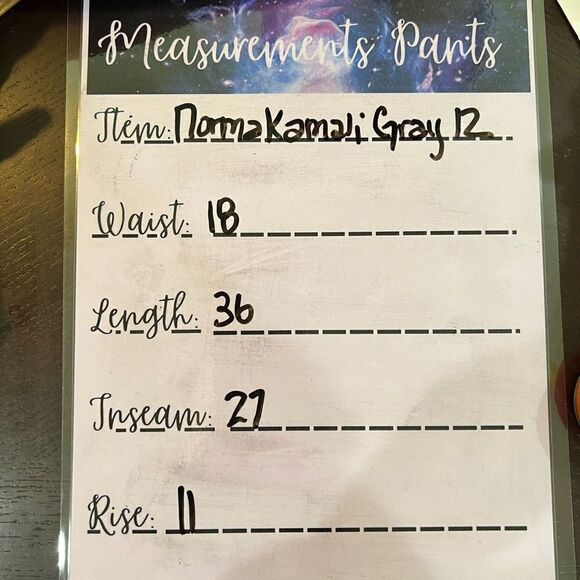 Measurements Pants
Item: Norma Kamali Gray 12
Waist: 18
Length: 36
Inseam: 27
Rise: 11